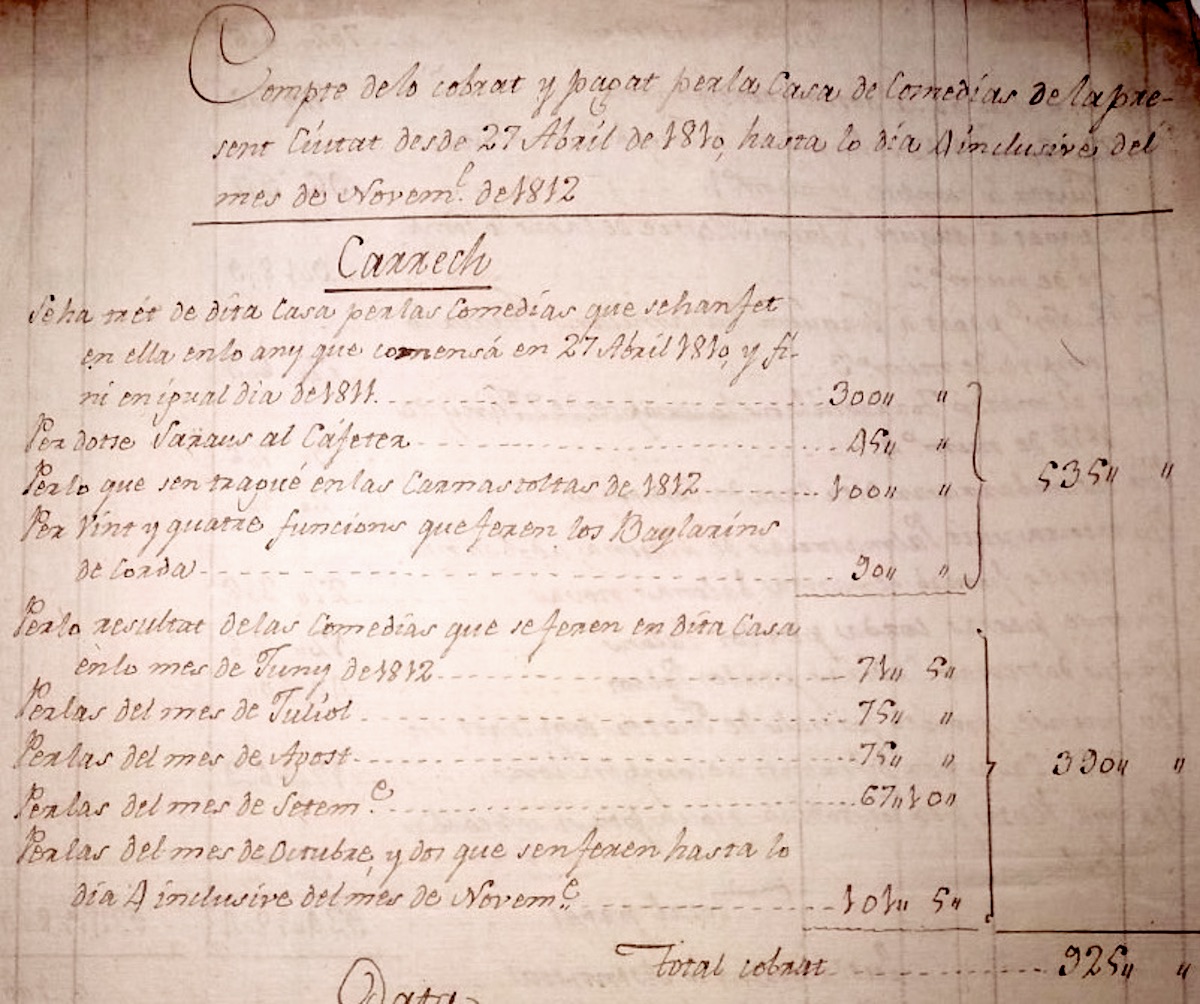 Compte de lo cobrat y pagat per la Casa de Comedias de la pre-
sent Ciutat desde 27 Abril de 1810, hasta lo dia 4 inclusive del
mes de Novem.e de 1812
Carrech
Se ha trét de dita Casa per las Comedias que se han fet
en ella en lo any que comensá en 27 Abril 1810, y fi-
ni en igual dia de 1811. 300,, ,,
Per dotse Saraus al Cafeter 45,, ,,
Per lo que sen tragué en las Carnastoltas de 1812 100,, ,, 535,, ,,
Per Vint y quatre funcions que feren los Baylarins
de Corda 90,, ,,
Per lo resultat de las Comedias que se feren en dita Casa
en lo mes de Juny de 1812 71,, 5,,
Per las del mes de Juliol 75,, ,,
Per las del mes de Agost 75,, ,, 390,, ,,
Per las del mes de Setem.e 67,, 10,,
Per las del mes de Octubre, y dos que sen feren hasta lo
dia 4 inclusive del mes de Novem.e 101,, 5,,
Total cobrat 925,, ,,
Data